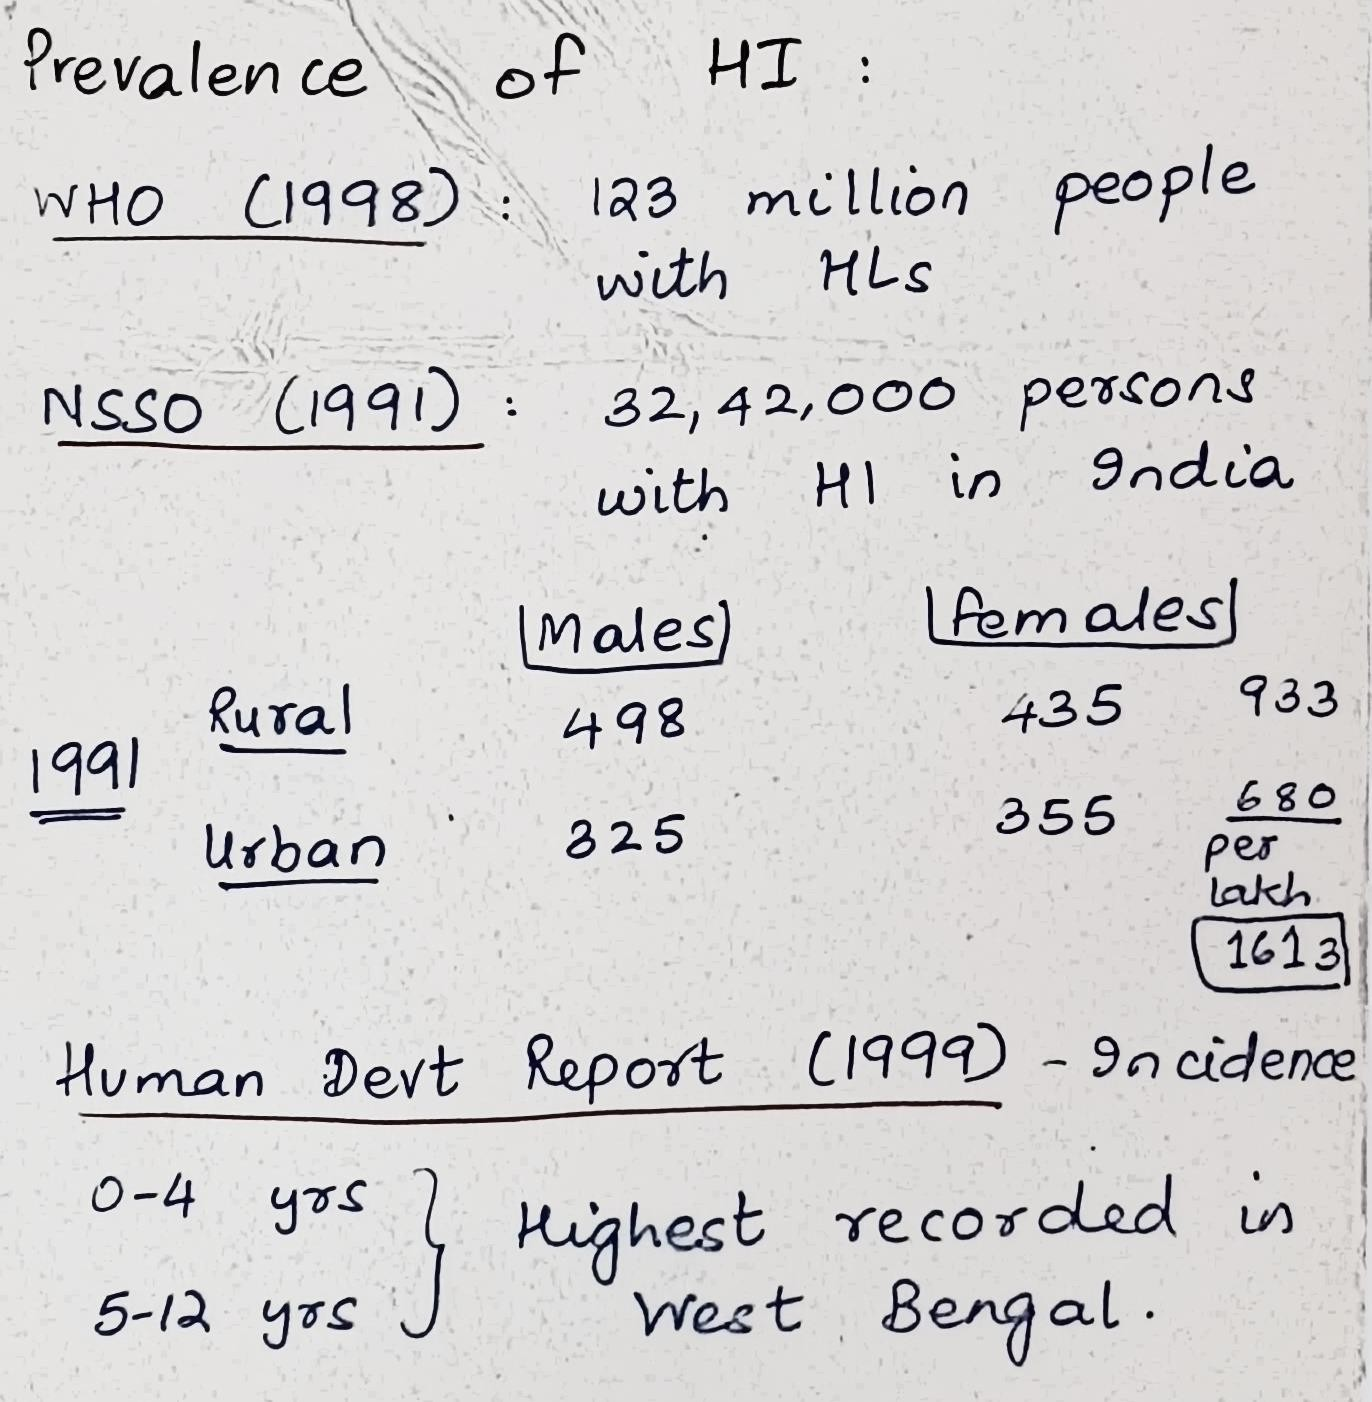 Prevalence of HI :
WHO (1998) : 123 million people
with HLs
NSSO (1991) : 32,42,000 persons
with HI in India
Males Females
Rural 498 435 933
1991
Urban 325 355 680
per
lakh
1613
Human Devt Report (1999) - Incidence
0-4 yrs } Highest recorded in
5-12 yrs West Bengal.